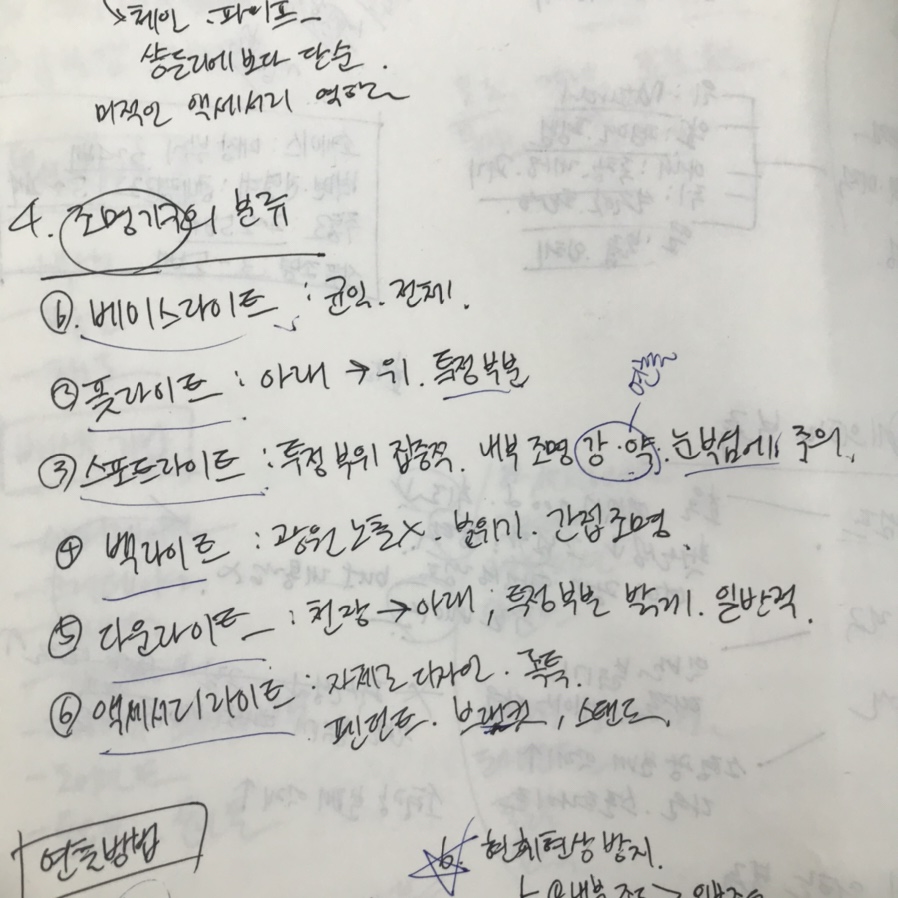 ↘체인·파이프
샹들리에보다 단순.
미적인 액세서리 역할
4. 조명기구의 분류
①. 베이스라이트 : 균일. 전체.
② 풋라이트 : 아래 → 위. 특정부분
연출
③ 스포트라이트 : 특정 부위 집중적. 내부 조명 강·약. 눈부심에 주의.
④ 백라이트 : 광원 노출 X. 분위기. 간접조명.
⑤ 다운라이트 : 천장 → 아래 ; 특정부분 밝게. 일반적.
⑥ 액세서리라이트 : 자체로 디자인. 독특.
펜던트. 브래킷, 스탠드.
연출방법
6. 현휘현상 방지.